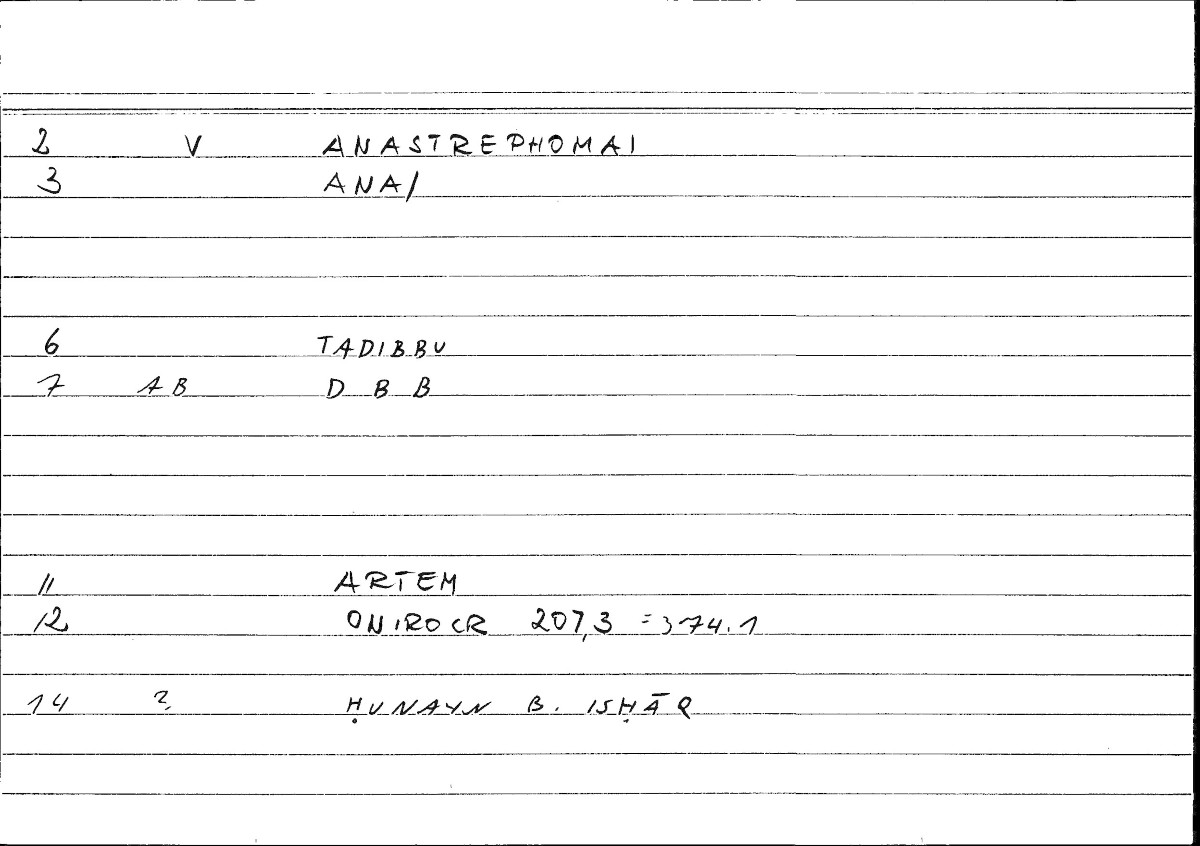 2 V ANASTREPHOMAI
3 ANA/
6 TADIBBU
7 AB D B B
11 ARTEM
12 ONIROCR 207,3 = 374.1
14 ? ḤUNAYN B. ISḤĀQ